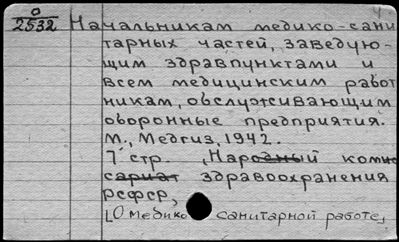 О
2532 Начальникам медико-сани
тарных частей, заведую-
щим здравпунктами и
всем медицинским работ
никам, обслуживающим
оборонные предприятия.
М., Медгиз, 1942.
7 стр. , Народный комис
сариат здравоохранения
РСФСР,
[О медико санитарной работе]